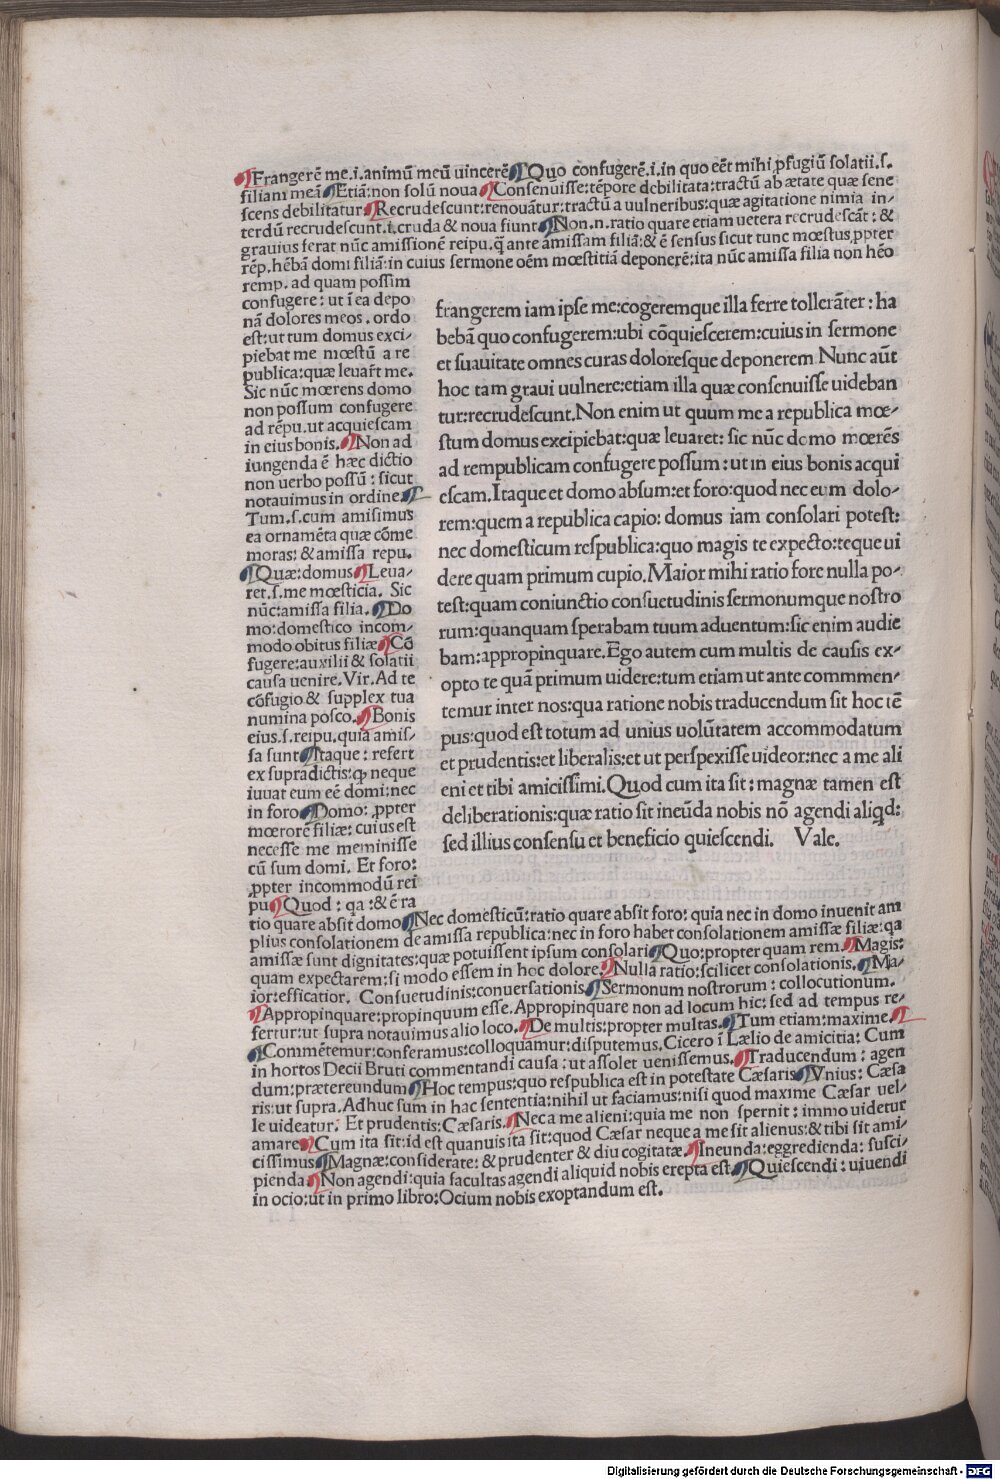 ¶Frangerē me.i.animū meū uincerē¶Quo confugerē.i.in quo eēt mihi ꝓfugiū solatii.s.
filiani meā¶Etiā:non solū noua¶Consenuisse:tēpore debilitata:tractū ab ætate quæ sene
scens debilitatur¶Recrudescunt:renouātur:tractū a uulneribus:quæ agitatione nimia in-
terdū recrudescunt.i.cruda & noua fiunt¶Non.n.ratio quare etiam uetera recrudescāt: &
grauius ferat nūc amissionē reipu.q̄ ante amissam filiā:& ē sensus sicut tunc mœstus ꝓpter
rēp.hēbā domi filiā:in cuius sermone oēm mœstitiā deponerē:ita nūc amissa filia non hēo
remp. ad quam possim
confugere: ut ī ea depo
nā dolores meos . ordo
est:ut tum domus exci-
piebat me mœstū a re
publica:quæ leuar̄t me.
Sic nūc mœrens domo
non possum confugere
ad rēpu.ut acquiescam
in eius bonis.¶Non ad
iungenda ē hæc dictio
non uerbo possū : sicut
notauimus in ordine.¶
Tum.s.cum amisimus
ea ornamēta quæ cōme
moras: & amissa repu.
¶Quæ:domus¶Leua-
ret.s.me mœsticia. Sic
nūc:amissa filia.¶Do
mo:domestico incom-
modo obitus filiæ¶Cō
fugere:auxilii & solatii
causa uenire.Vir.Ad te
cōfugio & supplex tua
numina posco.¶Bonis
eius.s.reipu.quia amis-
sa sunt¶Itaque: refert
ex supradictis:ꝙ neque
iuuat eum eē domi:nec
in foro¶Domo: ꝓpter
mœrorē filiæ: cuius est
necesse me meminisse
cū sum domi. Et foro:
ꝓpter incommodū rei
pu¶Quod : qa : & ē ra
tio quare absit domo¶Nec domesticū:ratio quare absit foro: quia nec in domo inuenit am
plius consolationem de amissa republica:nec in foro habet consolationem amissæ filiæ:qa
amissæ sunt dignitates:quæ potuissent ipsum consolari¶Quo:propter quam rem.¶Magis:
quam expectarem:si modo essem in hoc dolore.¶Nulla ratio:scilicet consolationis.¶Ma-
ior:efficatior. Consuetudinis:conuersationis¶Sermonum nostrorum : collocutionum.
¶Appropinquare:propinquum esse.Appropinquare non ad locum hic: sed ad tempus re-
fertur:ut supra notauimus alio loco.¶De multis:propter multas.¶Tum etiam:maxime.¶
¶Commētemur:conferamus:colloquamur:disputemus.Cicero ī Lælio de amicitia: Cum
in hortos Decii Bruti commentandi causa : ut assolet uenissemus.¶Traducendum : agen
dum:prætereundum¶Hoc tempus:quo respublica est in potestate Cæsaris¶Vnius: Cæsa
ris:ut supra.Adhuc sum in hac sententia:nihil ut faciamus:nisi quod maxime Cæsar uel-
le uideatur. Et prudentis:Cæsaris.¶Nec a me alieni:quia me non spernit: immo uidetur
amare¶Cum ita sit:id est quanuis ita sit:quod Cæsar neque a me sit alienus:& tibi sit ami-
cissimus¶Magnæ:considerate: & prudenter & diu cogitatæ.¶Ineunda:eggredienda: susci-
pienda.¶Non agendi:quia facultas agendi aliquid nobis erepta est.¶Quiescendi: uiuendi
in ocio:ut in primo libro:Ocium nobis exoptandum est.
frangerem iam ipse me:cogeremque illa ferre tollerāter: ha
bebā quo confugerem:ubi cōquiescerem:cuius in sermone
et suauitate omnes curas doloresque deponerem Nunc aūt
hoc tam graui uulnere:etiam illa quæ consenuisse uideban
tur:recrudescunt.Non enim ut quum me a republica mœ-
stum domus excipiebat:quæ leuaret: sic nūc domo mœrēs
ad rempublicam confugere possum : ut in eius bonis acqui
escam.Itaque et domo absum:et foro:quod nec eum dolo-
rem:quem a republica capio: domus iam consolari potest:
nec domesticum respublica:quo magis te expecto:teque ui
dere quam primum cupio.Maior mihi ratio fore nulla po-
test:quam coniunctio consuetudinis sermonumque nostro
rum:quanquam sperabam tuum aduentum:sic enim audie
bam:appropinquare.Ego autem cum multis de causis ex-
opto te quā primum uidere:tum etiam ut ante commmen-
temur inter nos:qua ratione nobis traducendum sit hoc tē
pus:quod est totum ad unius uolūtatem accommodatum
et prudentis:et liberalis:et ut perspexisse uideor:nec a me ali
eni et tibi amicissimi.Quod cum ita sit : magnæ tamen est
deliberationis:quæ ratio sit ineūda nobis nō agendi aliqd:
sed illius consensu et beneficio quiescendi. Vale.
Digitalisierung gefördert durch die Deutsche Forschungsgemeinschaft - DFG